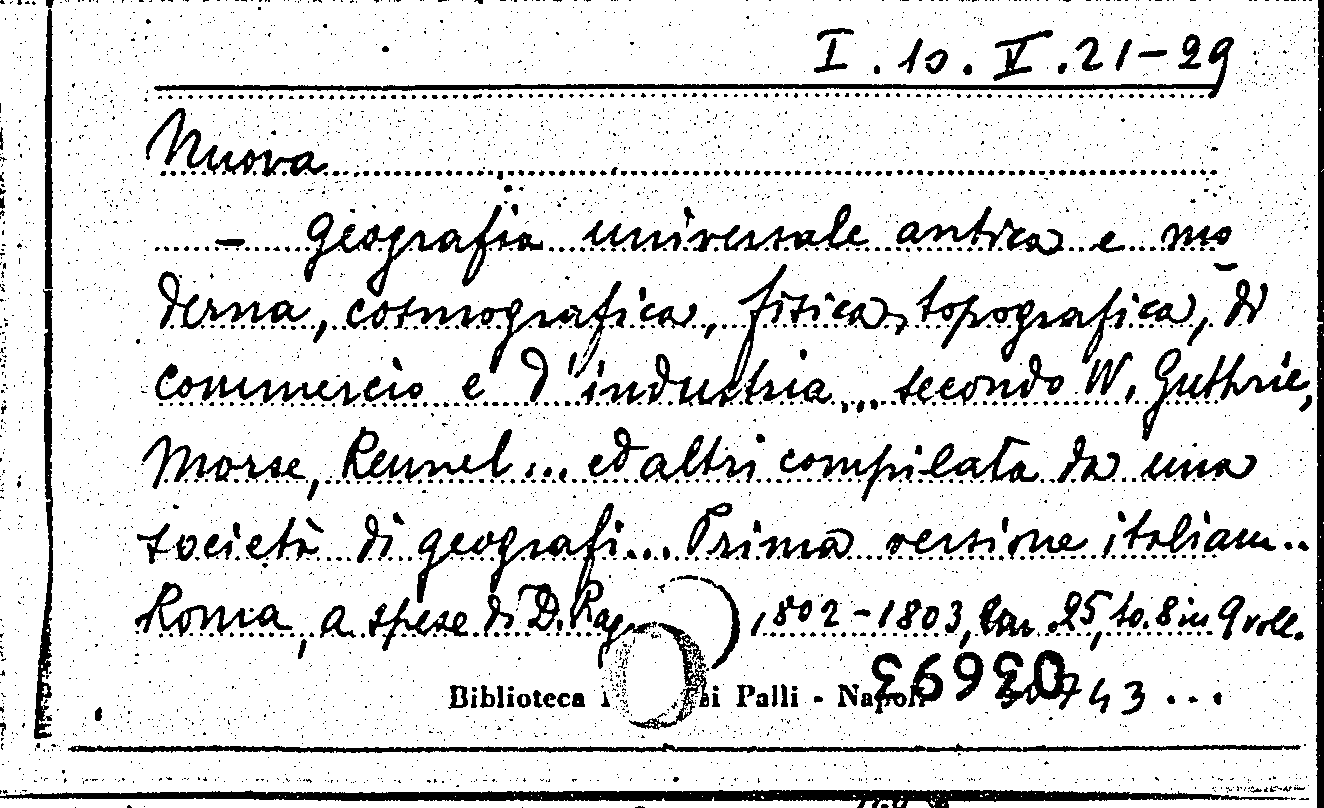 I. 10. V. 21-29
Nuova
- geografia universale antica e mo
derna, cosmografica, fisica, topografica, di
commercio e d'industria... secondo W. Guthrie,
Morse, Rennel... ed altri compilata da una
società di geografi... Prima versione italiana..
Roma, a spese di D. 1802-1803, 25, to. 8 in 9 voll.
Biblioteca ai Palli - Napoli 743...